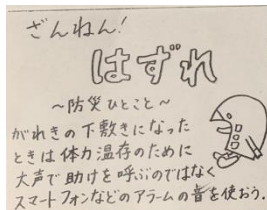 ざんねん!
はずれ
～防災ひとこと～
がれきの下敷きになった
ときは体力温存のために
大声で助けを呼ぶのではなく
スマートフォンなどのアラームの音を使おう.